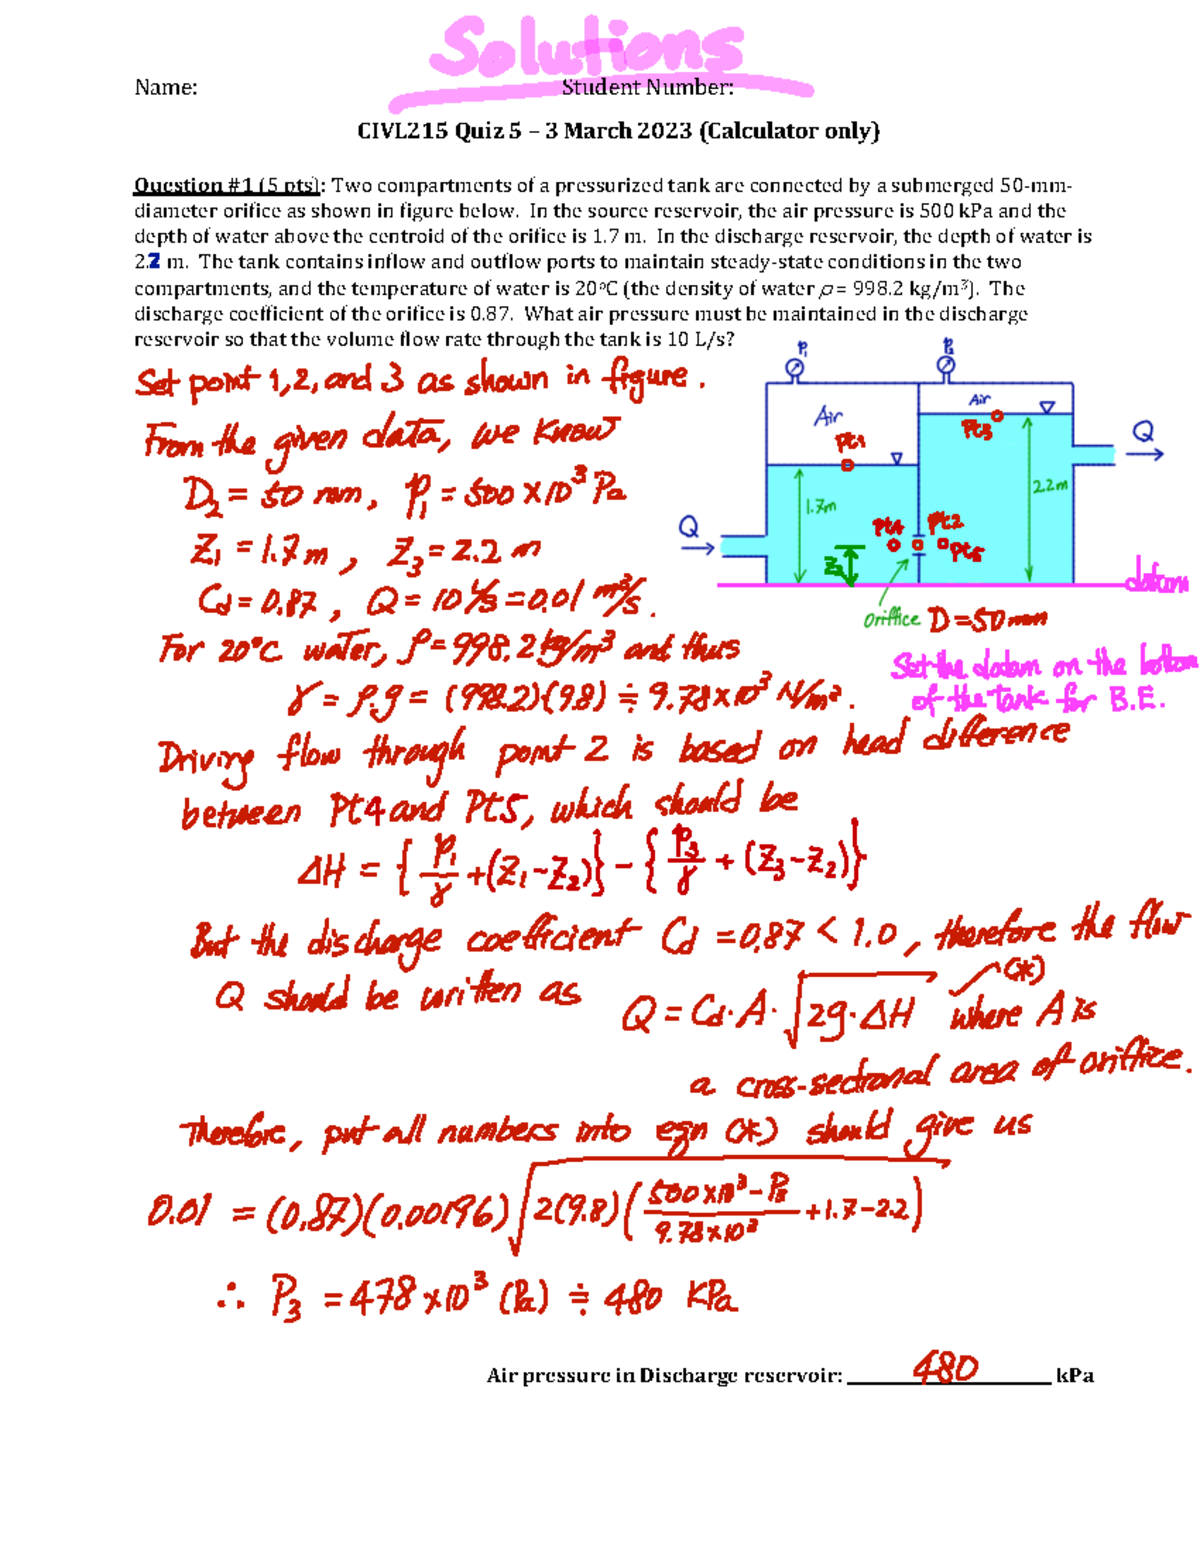 Solutions
Name: Student Number:
CIVL215 Quiz 5 – 3 March 2023 (Calculator only)
Question #1 (5 pts): Two compartments of a pressurized tank are connected by a submerged 50-mm-
diameter orifice as shown in figure below. In the source reservoir, the air pressure is 500 kPa and the
depth of water above the centroid of the orifice is 1.7 m. In the discharge reservoir, the depth of water is
2.2 m. The tank contains inflow and outflow ports to maintain steady-state conditions in the two
compartments, and the temperature of water is 20°C (the density of water ρ = 998.2 kg/m³). The
discharge coefficient of the orifice is 0.87. What air pressure must be maintained in the discharge
reservoir so that the volume flow rate through the tank is 10 L/s?
P₁ P₂
Air Air
Pt1 Pt3
Q
1.7m 2.2m
Q
Pt4 Pt2 Pt5
Z₂
datum
Oriffice D = 50 mm
Set the datum on the bottom
of the tank for B.E.
Set point 1, 2, and 3 as shown in figure.
From the given data, we know
D₂ = 50 mm, P₁ = 500 × 10³ Pa
Z₁ = 1.7 m, Z₃ = 2.2 m
Cd = 0.87, Q = 10 L/s = 0.01 m³/s.
For 20°C water, ρ = 998.2 kg/m³ and thus
γ = ρ.g = (998.2)(9.8) ≑ 9.78 × 10³ N/m².
Driving flow through point 2 is based on head difference
between Pt4 and Pt5, which should be
ΔH = {P₁/γ + (Z₁ - Z₂)} - {P₃/γ + (Z₃ - Z₂)}
But the discharge coefficient Cd = 0.87 < 1.0, therefore the flow
Q should be written as Q = Cd · A · √(2g · ΔH) (*) where A is
a cross-sectional area of oriffice.
Therefore, put all numbers into eqn (*) should give us
0.01 = (0.87)(0.00196)√(2(9.8)((500 × 10³ - P₃)/(9.78 × 10³) + 1.7 - 2.2))
∴ P₃ = 478 × 10³ (Pa) ≑ 480 KPa
Air pressure in Discharge reservoir: 480 kPa